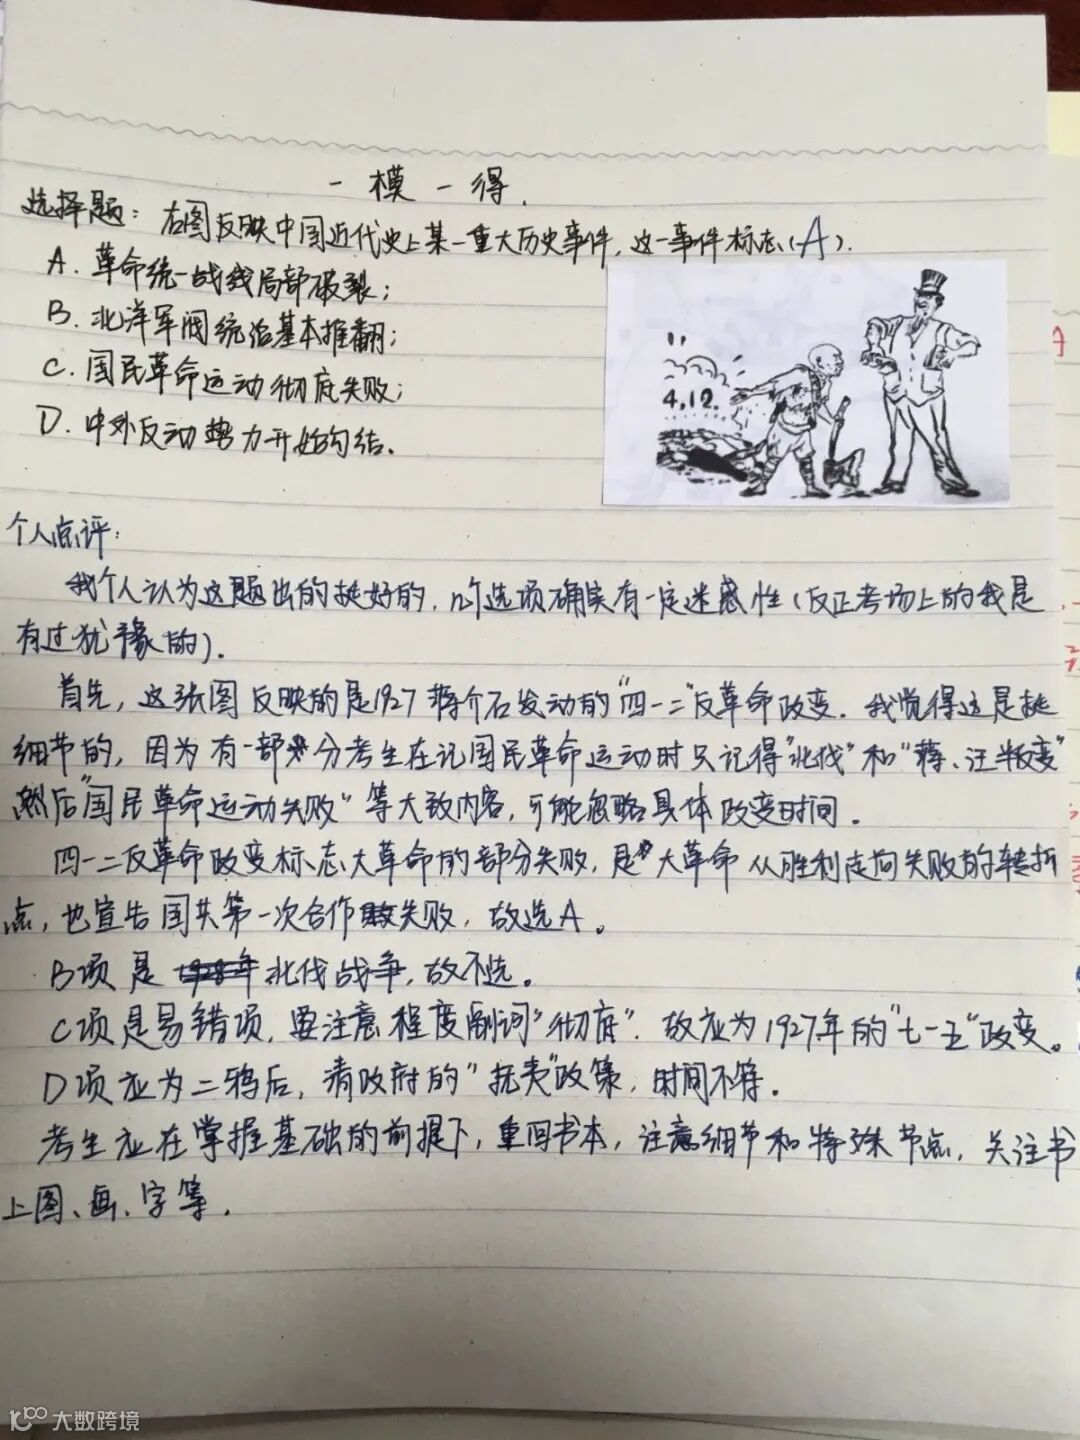 一模一得.
选择题：右图反映中国近代史上某一重大历史事件，这一事件标志（A）.
A. 革命统一战线局部破裂；
B. 北洋军阀统治基本推翻；
C. 国民革命运动彻底失败；
D. 中外反动势力开始勾结.
4.12.
个人点评：
我个人认为这题出的挺好的，几个选项确实有一定迷惑性（反正考场上的我是
有过犹豫的）.
首先，这张图反映的是1927蒋介石发动的“四一二”反革命政变. 我觉得这是挺
细节的，因为有一部分考生在记国民革命运动时只记得“北伐”和“蒋、汪叛变”
然后“国民革命运动失败”等大致内容，可能忽略具体政变时间。
四一二反革命政变标志大革命的部分失败，是大革命从胜利走向失败的转折
点，也宣告国共第一次合作失败，故选A。
B项是北伐战争，故不选。
C项是易错项，要注意程度副词“彻底”. 故应为1927年的“七一五”政变。
D项应为二鸦后，清政府的“抚夷”政策，时间不符.
考生应在掌握基础的前提下，重回书本，注意细节和特殊节点，关注书
上图、画、字等.
大数跨境